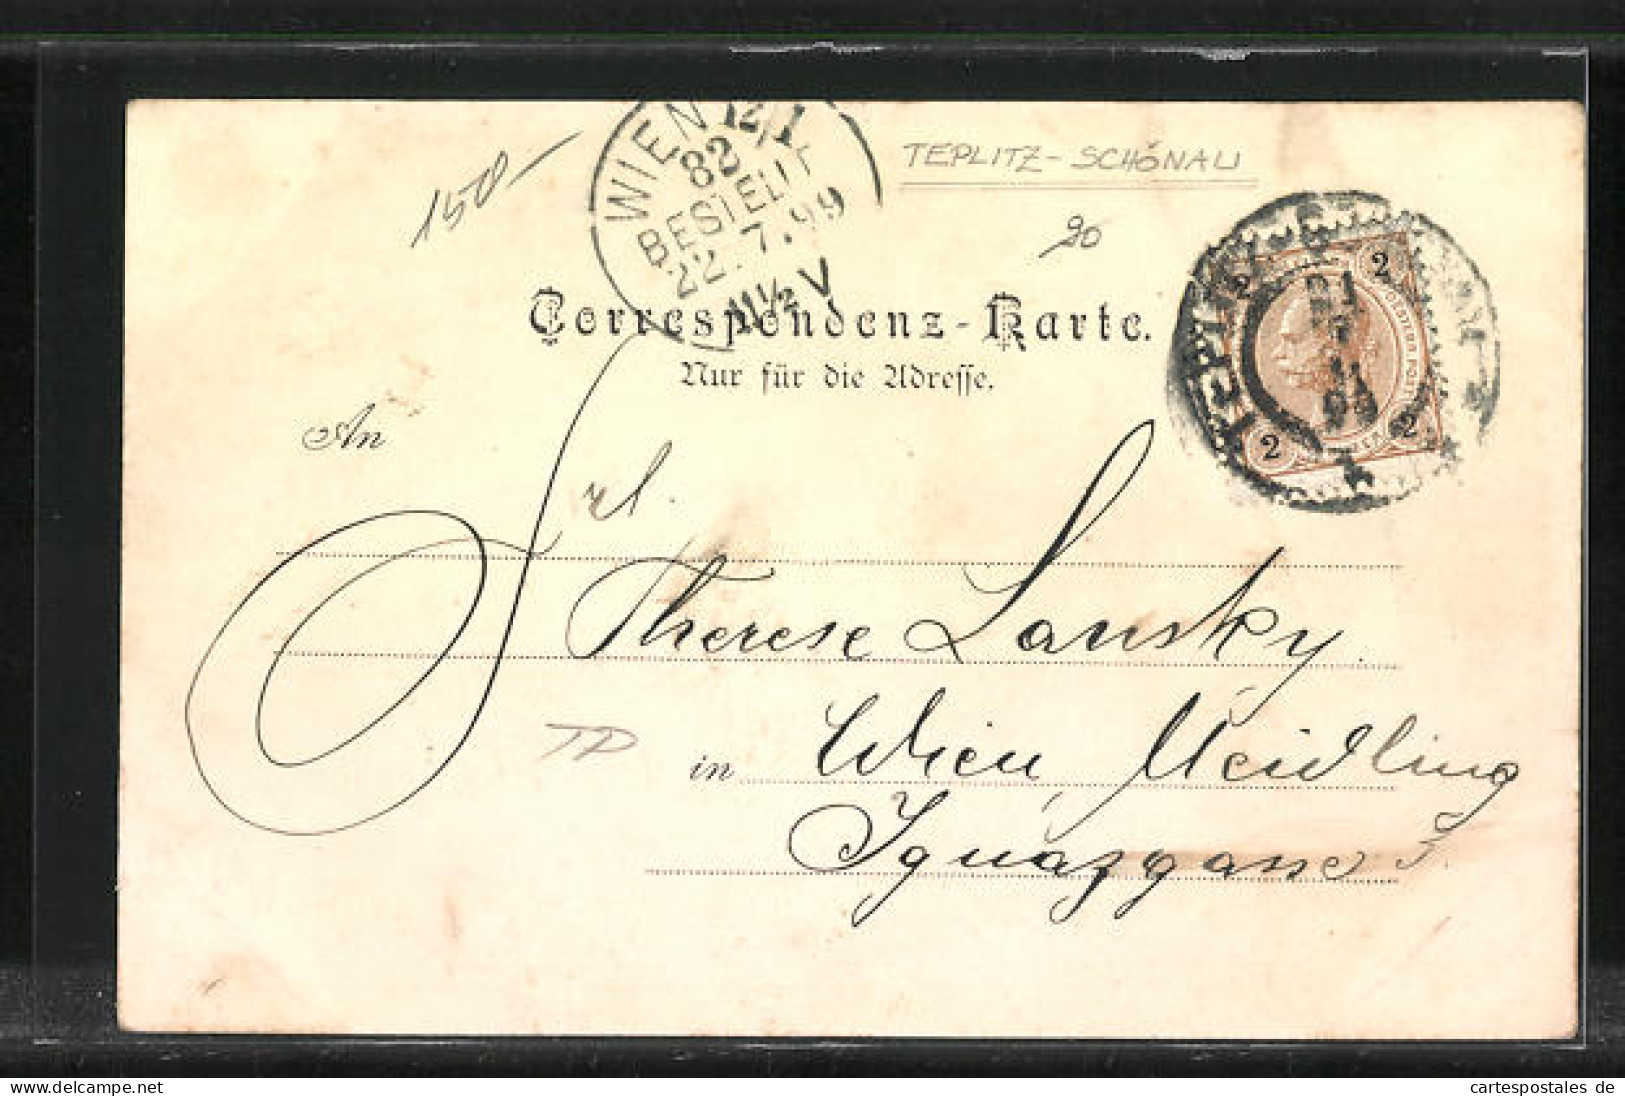 150-
WIEN 12/1
82
BESTELLT
22.7.99
11½ V
TEPLITZ-SCHÖNAU
20
2 2 2 2
TEPLITZ
21
7
11
99
Correspondenz-Karte.
Nur für die Adresse.
An
Frl.
Therese Lansky
in Wien, Meidling
Ignazgasse 3.
TD
cartespostales de